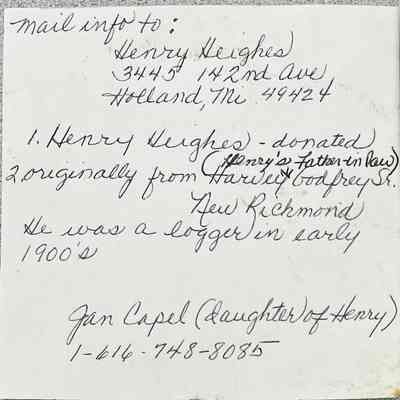 mail info to:
Henry Heighes
3445 142nd Ave
Holland, Mi 49424
1. Henry Heighes - donated
(Henry's Father-in law)
2. originally from Harvey Godfrey Sr.
New Richmond
He was a logger in early
1900's
Jan Capel (daughter of Henry)
1-616-748-8085